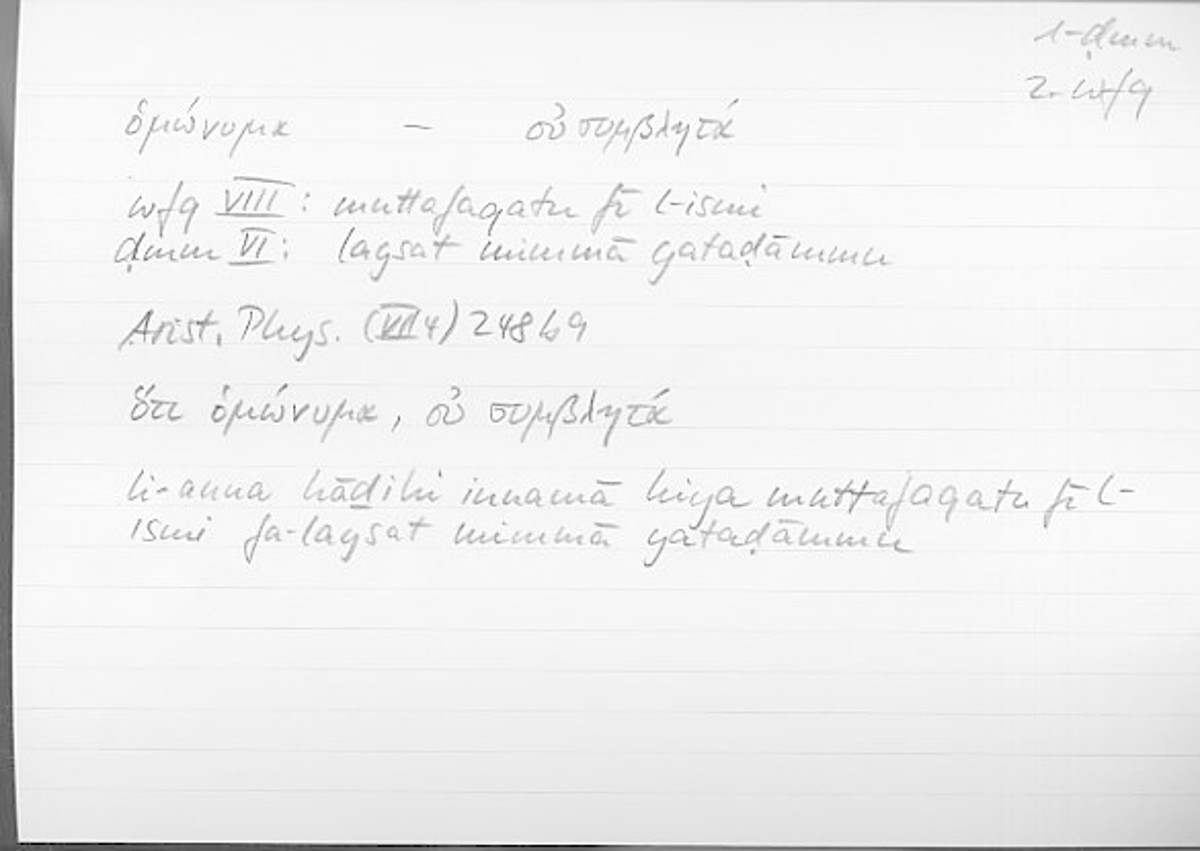 1-ḍmm
2. wfq
ὁμώνυμα — οὐ συμβλητά
wfq VIII: muttafaqatu fī l-ismi
ḍmm VI: laysat mimmā yataḍāmmu
Arist. Phys. (VII 4) 248 b 9
ὅτι ὁμώνυμα, οὐ συμβλητά
li-anna hāḏihi innamā hiya muttafaqatu fī l-
ismi fa-laysat mimmā yataḍāmmu